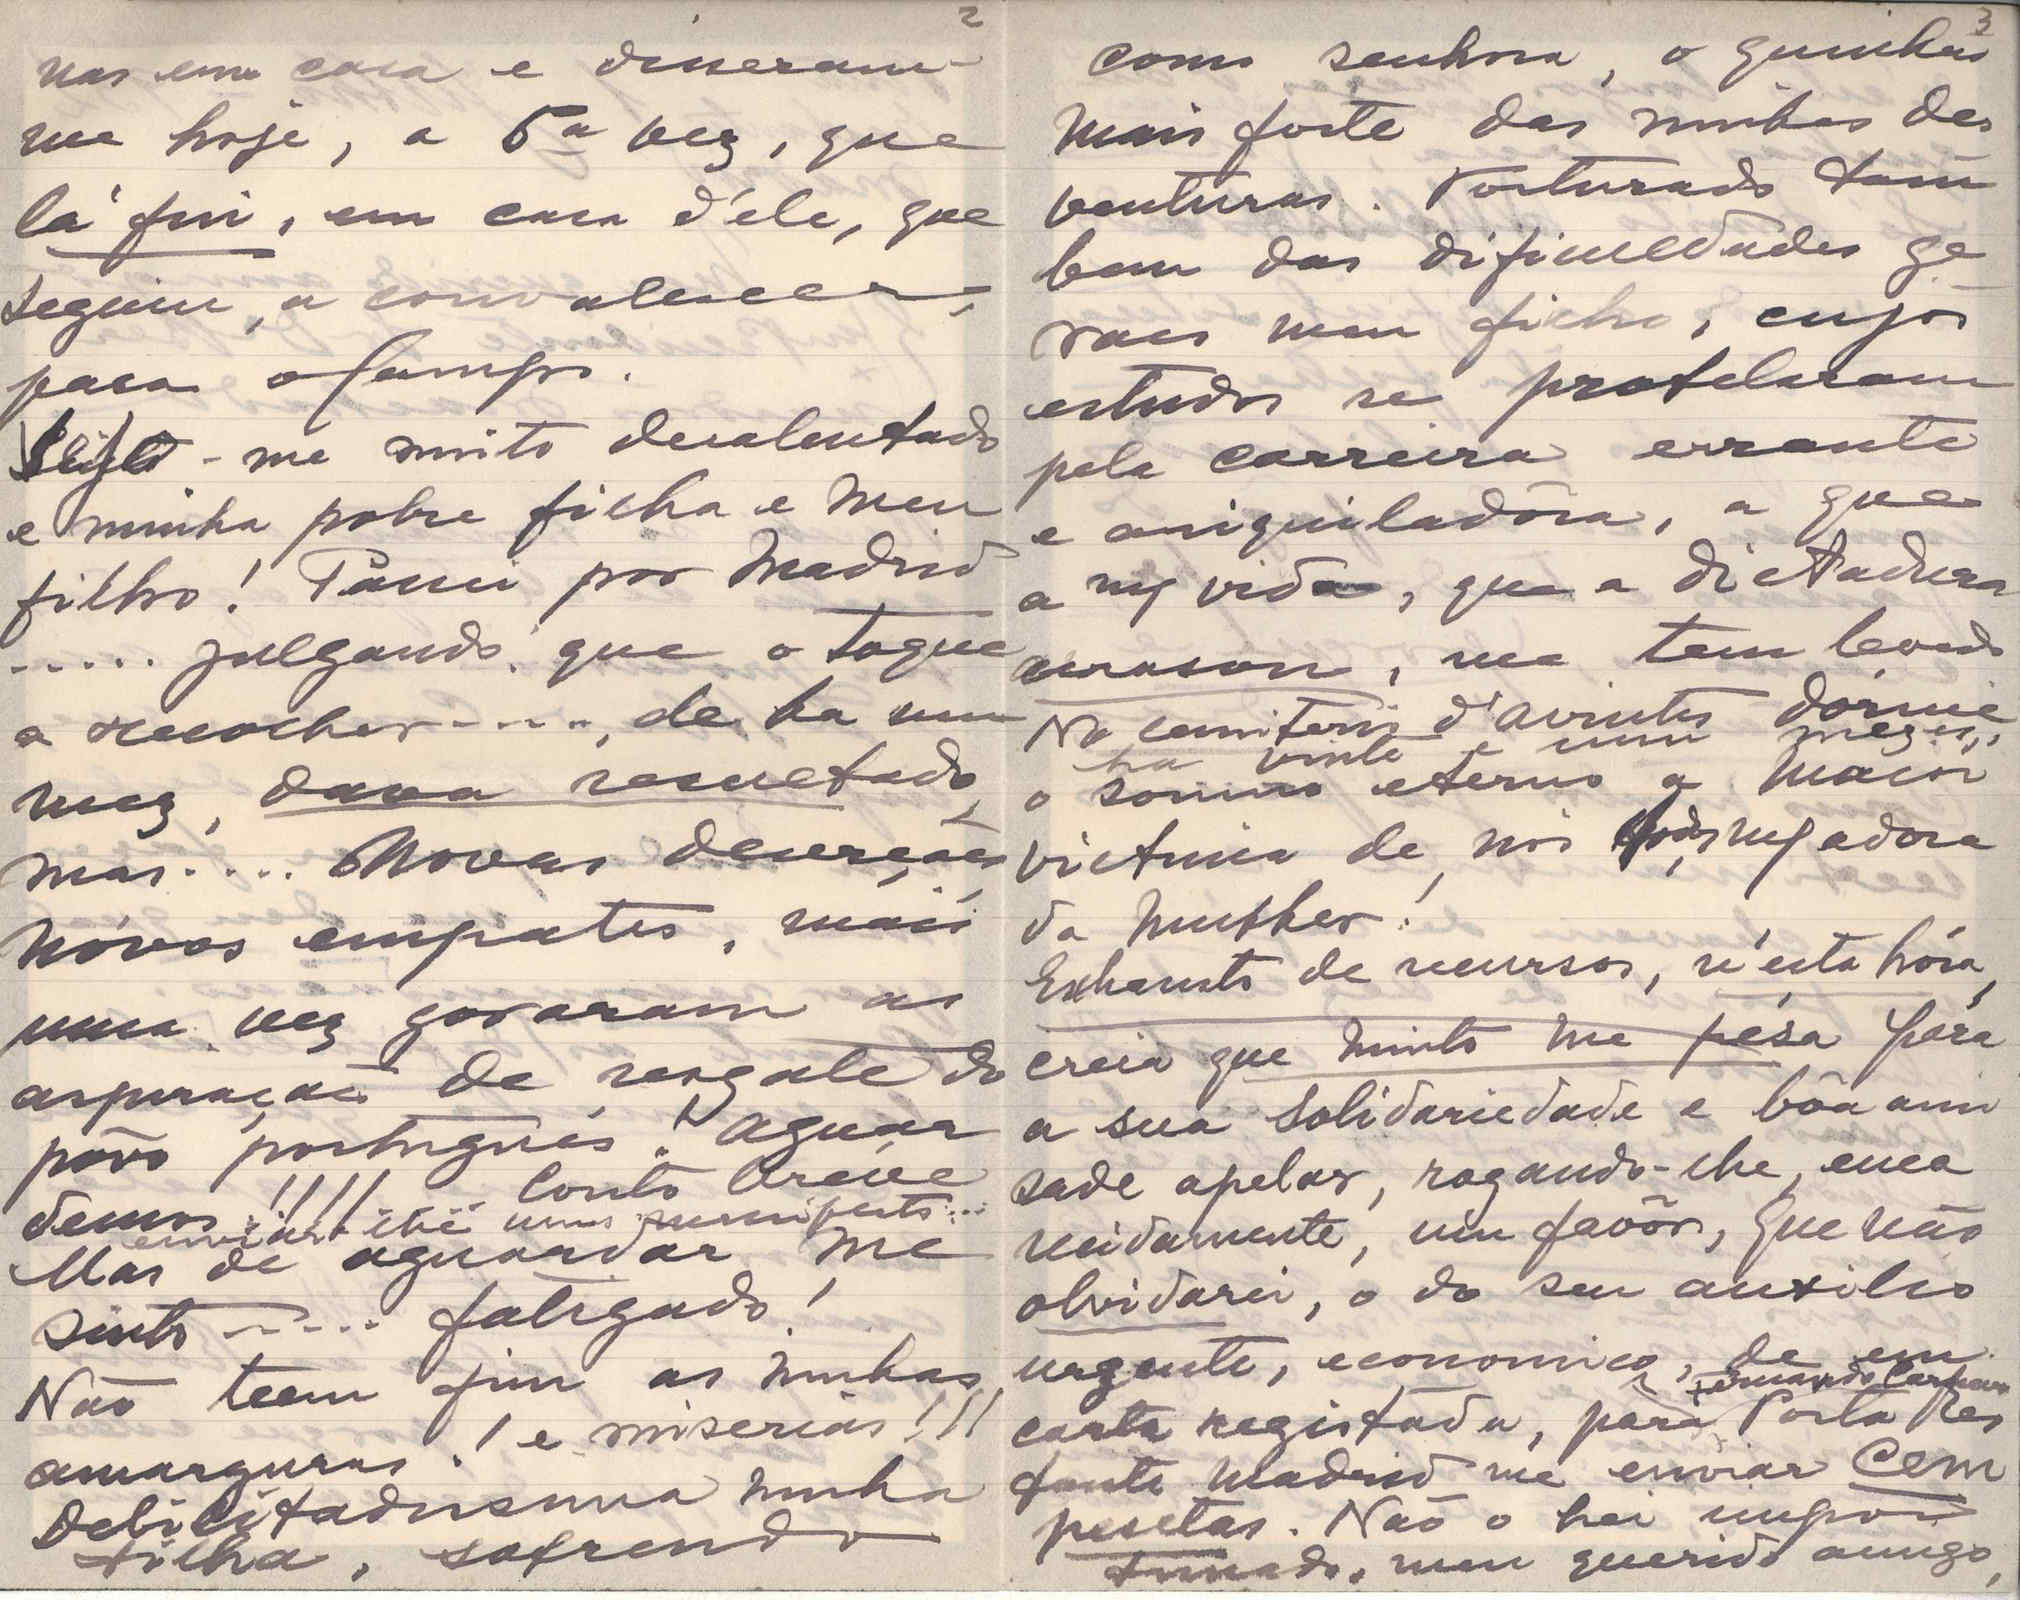 2
nas em casa e disseram-
me hoje, a 5ª vez, que
lá fui, em casa d'ele, que
seguiu, a convalescer,
para o Campo.
Sinto-me muito desalentado
e minha pobre filha e meu
filho! Passei por Madrid
..... julgando que o toque
a recolher ...., de ha um
mez, dava resultado,
mas.... Novas deserções
Nóvos empates, mais
uma vez goraram as
aspiração de resgate do
pôvo português! Aguar
demos!!!! Conto breve
enviar-lhe uns manifestos...
Mas de aguardar me
sinto ..... fatigado!
Não teem fim as minhas
amarguras! e miserias!!!
Debilitadissima minha
filha, sofrendo
3
como senhora, o quinhão
mais forte das minhas des
venturas. Torturado tam
bem das dificuldades ge
raes meu filho, cujos
estudos se protelaram
pela carreira errante
e aniquiladôra, a que
a vida, que a dictadura
me tem levado
No cemiterio d'Avintes dórme
ha vinte e um mezes,
o somno eterno a maior
victima de nós
da Mulher!
Exhausto de recursos, n'esta hóra,
creia que muito me pésa para
a sua solidariedade e bôa ami
sade apelar, rogando-lhe, enca
recidamente, um favôr, que não
olvidarei, o do seu auxilio
urgente, economico, de em
carta registada, para Posta Res
tante Madrid me enviar Cem
pesetas. Não o hei impor
tunado, meu querido amigo,